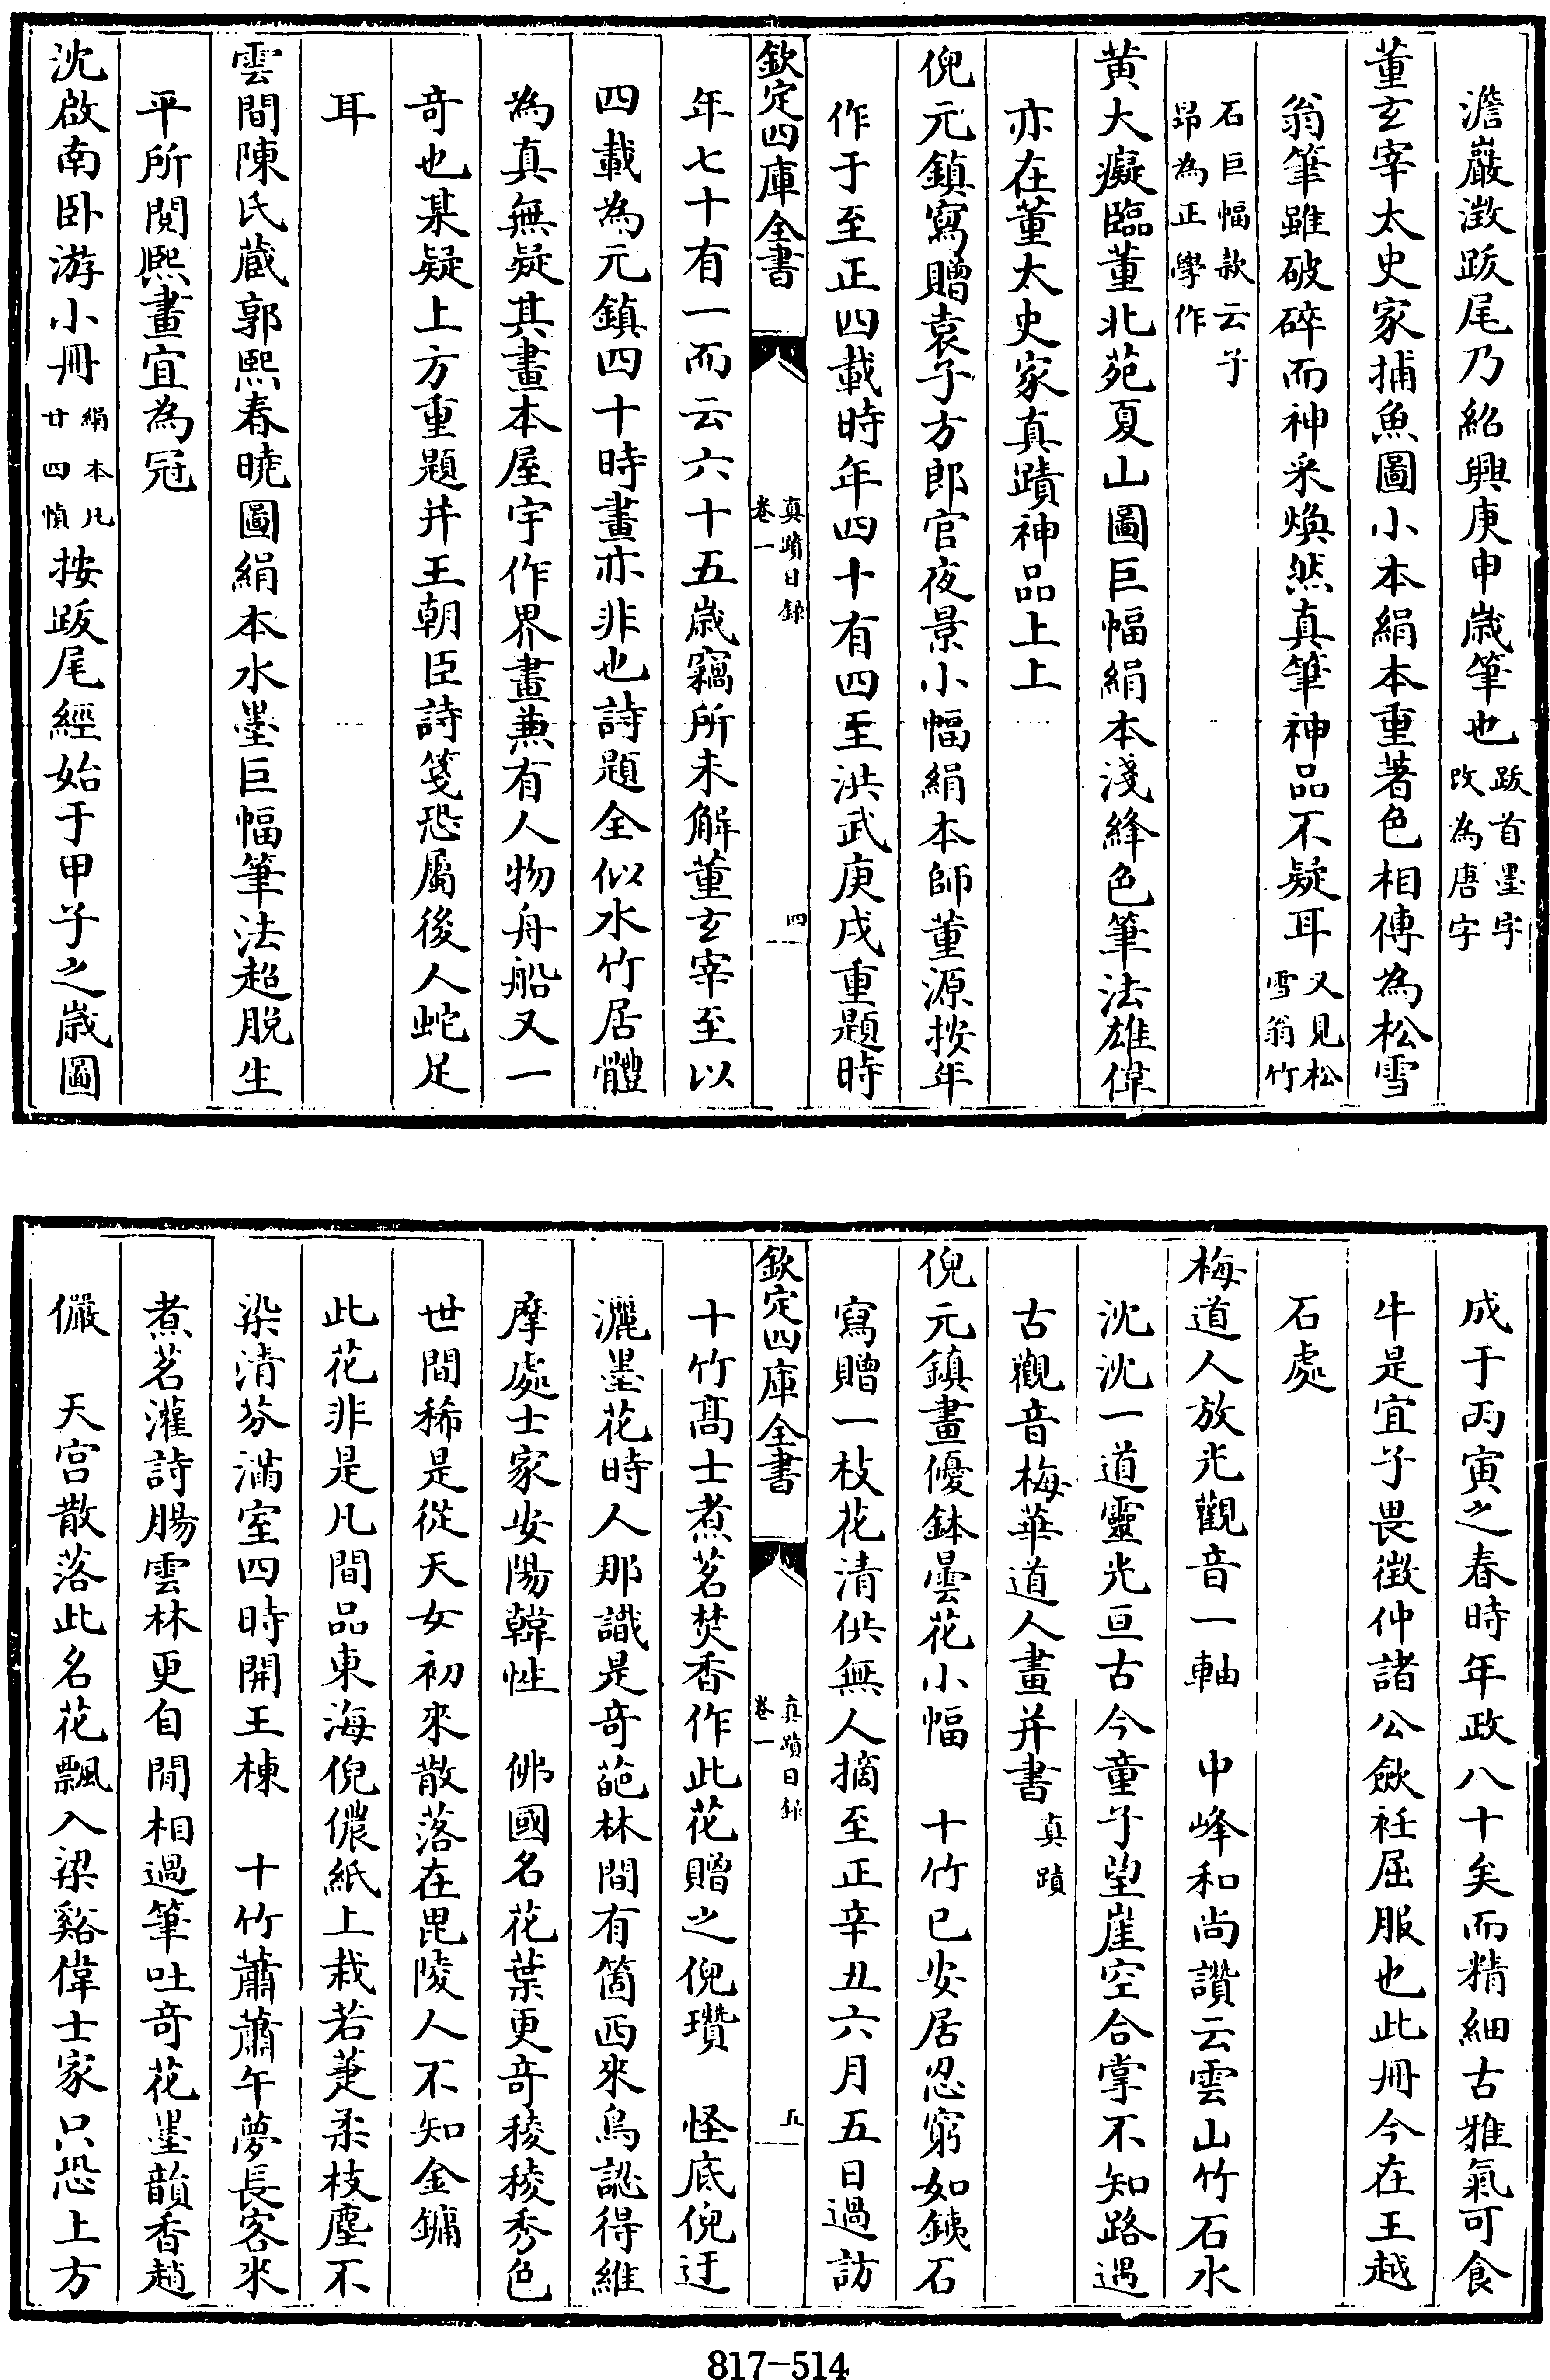 澹巖澂跋尾乃紹興庚申歲筆也跋首墨字改為唐字
董玄宰太史家捕魚圖小本絹本重著色相傳為松雪
翁筆雖破碎而神采煥然真筆神品不疑耳又見松雪翁竹
石巨幅款云子昂為正學作
黃大癡臨董北苑夏山圖巨幅絹本淺絳色筆法雄偉
亦在董太史家真蹟神品上上
倪元鎮寫贈袁子方郎官夜景小幅絹本師董源按年
作于至正四載時年四十有四至洪武庚戌重題時
欽定四庫全書
真蹟日錄
卷一
四
年七十有一而云六十五歲竊所未解董玄宰至以
四載為元鎮四十時畫亦非也詩題全似水竹居體
為真無疑其畫本屋宇作界畫兼有人物舟船又一
奇也某疑上方重題并王朝臣詩箋恐屬後人蛇足
耳
雲間陳氏藏郭熙春曉圖絹本水墨巨幅筆法超脫生
平所閱熙畫宜為冠
沈啟南卧游小冊絹本凡廿四幀按跋尾經始于甲子之歲圖
成于丙寅之春時年政八十矣而精細古雅氣可食
牛是宜子畏徵仲諸公斂衽屈服也此冊今在王越
石處
梅道人放光觀音一軸　中峰和尚讚云雲山竹石水
沈沈一道靈光亘古今童子望崖空合掌不知路遇
古觀音梅華道人畫并書真蹟
倪元鎮畫優鉢曇花小幅　十竹已安居忍窮如鐵石
寫贈一枝花清供無人摘至正辛丑六月五日過訪
欽定四庫全書
真蹟日錄
卷一
五
十竹高士煮茗焚香作此花贈之倪瓚　怪底倪迂
灑墨花時人那識是奇葩林間有箇西來鳥訛得維
摩處士家安陽韓性　佛國名花葉更奇稜稜秀色
世間稀是從天女初來散落在毘陵人不知金鏞
此花非是凡間品東海倪儂紙上栽若萐柔枝塵不
染清芬滿室四時開王棟　十竹蕭蕭午夢長客來
煮茗灌詩腸雲林更自閒相過筆吐奇花墨韻香趙
儼　天宮散落此名花飄入梁谿偉士家只恐上方
817-514